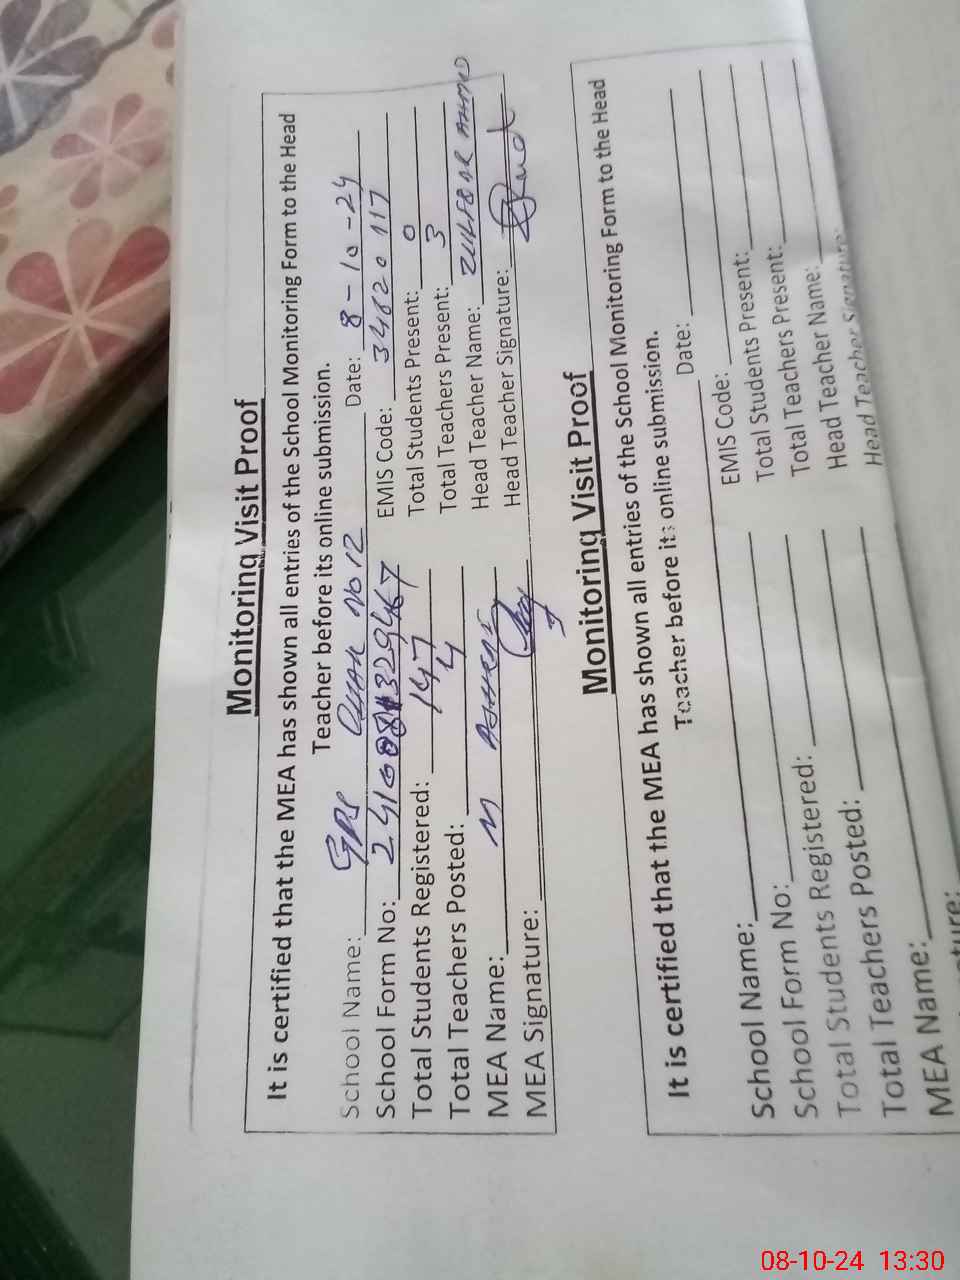 Monitoring Visit Proof
It is certified that the MEA has shown all entries of the School Monitoring Form to the Head
Teacher before its online submission.
School Name: GPS No 12 Date: 8-10-24
School Form No: EMIS Code: 34820117
Total Students Registered: 147 Total Students Present: 0
Total Teachers Posted: 4 Total Teachers Present: 3
MEA Name: M Head Teacher Name: ZULFQAR AHMD
MEA Signature: Head Teacher Signature:
Monitoring Visit Proof
It is certified that the MEA has shown all entries of the School Monitoring Form to the Head
Teacher before its online submission.
Date:
School Name: EMIS Code:
School Form No: Total Students Present:
Total Students Registered: Total Teachers Present:
Total Teachers Posted: Head Teacher Name:
MEA Name: Head Teacher Signature:
08-10-24 13:30